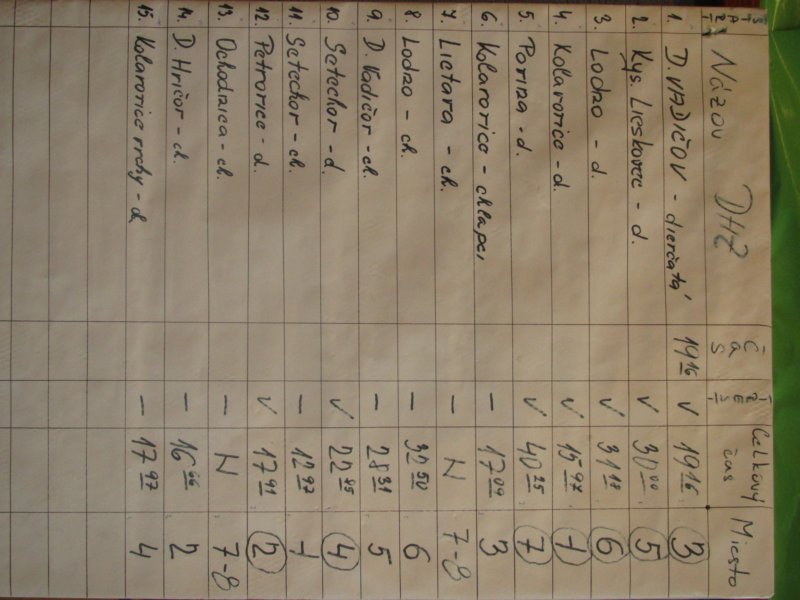 ŠTART Názov DHZ Čas TEST Celkový čas Miesto
1. D. VADIČOV - dievčatá 19 16 ✓ 19 16 3
2. Kys. Lieskovec - d. ✓ 30 00 5
3. Lodno - d. ✓ 31 18 6
4. Kolarovice - d. ✓ 15 97 1
5. Porúza - d. ✓ 40 25 7
6. Kolarovice - chlapci - 17 09 3
7. Lietava - ch. - N 7-8
8. Lodno - ch. - 32 50 6
9. D. Vadičov - ch. - 28 31 5
10. Setechov - d. ✓ 22 85 4
11. Setechov - ch. - 12 97 1
12. Petrovice - d. ✓ 17 91 2
13. Ochodnica - ch. - N 7-8
14. D. Hričov - ch. - 16 66 2
15. Kolarovice vrchy - d. - 17 97 4